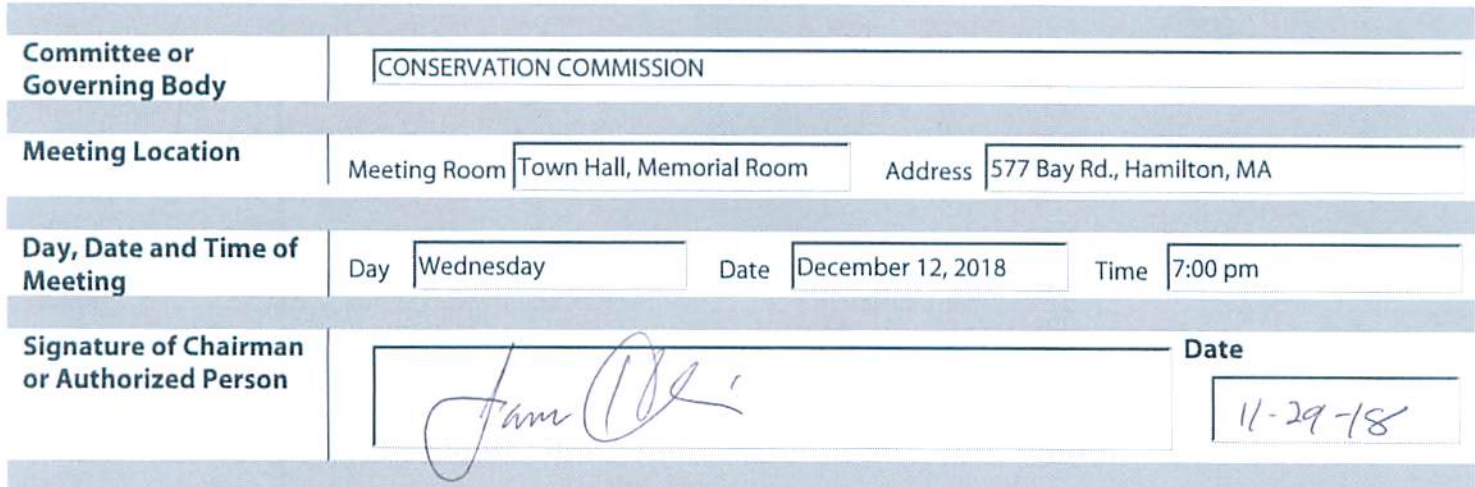 Committee or
Governing Body
CONSERVATION COMMISSION
Meeting Location
Meeting Room Town Hall, Memorial Room Address 577 Bay Rd., Hamilton, MA
Day, Date and Time of
Meeting
Day Wednesday Date December 12, 2018 Time 7:00 pm
Signature of Chairman
or Authorized Person
Date
11-29-18